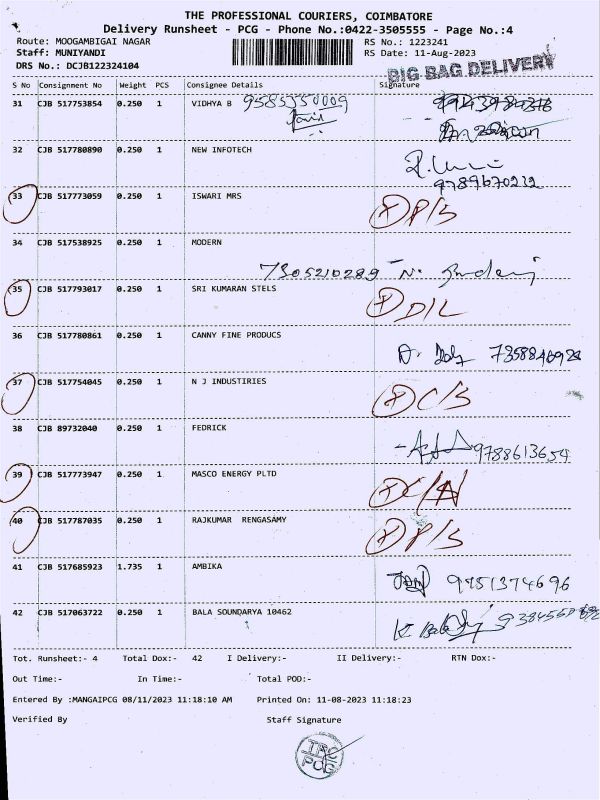 THE PROFESSIONAL COURIERS, COIMBATORE
Delivery Runsheet - PCG - Phone No.:0422-3505555 - Page No.:4
Route: MOOGAMBIGAI NAGAR RS No.: 1223241
Staff: MUNIYANDI RS Date: 11-Aug-2023
DRS No.: DCJB122324104 BIG BAG DELIVERY
S No Consignment No Weight PCS Consignee Details Signature
31 CJB 517753854 0.250 1 VIDHYA B
32 CJB 517780890 0.250 1 NEW INFOTECH
9789670232
33 CJB 517773059 0.250 1 ISWARI MRS P/S
34 CJB 517538925 0.250 1 MODERN
7305210289 N.
35 CJB 517793017 0.250 1 SRI KUMARAN STELS D/L
36 CJB 517780861 0.250 1 CANNY FINE PRODUCS
37 CJB 517754045 0.250 1 N J INDUSTIRIES C/S
38 CJB 89732040 0.250 1 FEDRICK
9788613654
39 CJB 517773947 0.250 1 MASCO ENERGY PLTD
40 CJB 517787035 0.250 1 RAJKUMAR RENGASAMY P/S
41 CJB 517685923 1.735 1 AMBIKA
9451374696
42 CJB 517063722 0.250 1 BALA SOUNDARYA 10462
Tot. Runsheet:- 4 Total Dox:- 42 I Delivery:- II Delivery:- RTN Dox:-
Out Time:- In Time:- Total POD:-
Entered By :MANGAIPCG 08/11/2023 11:18:10 AM Printed On: 11-08-2023 11:18:23
Verified By Staff Signature
PCG